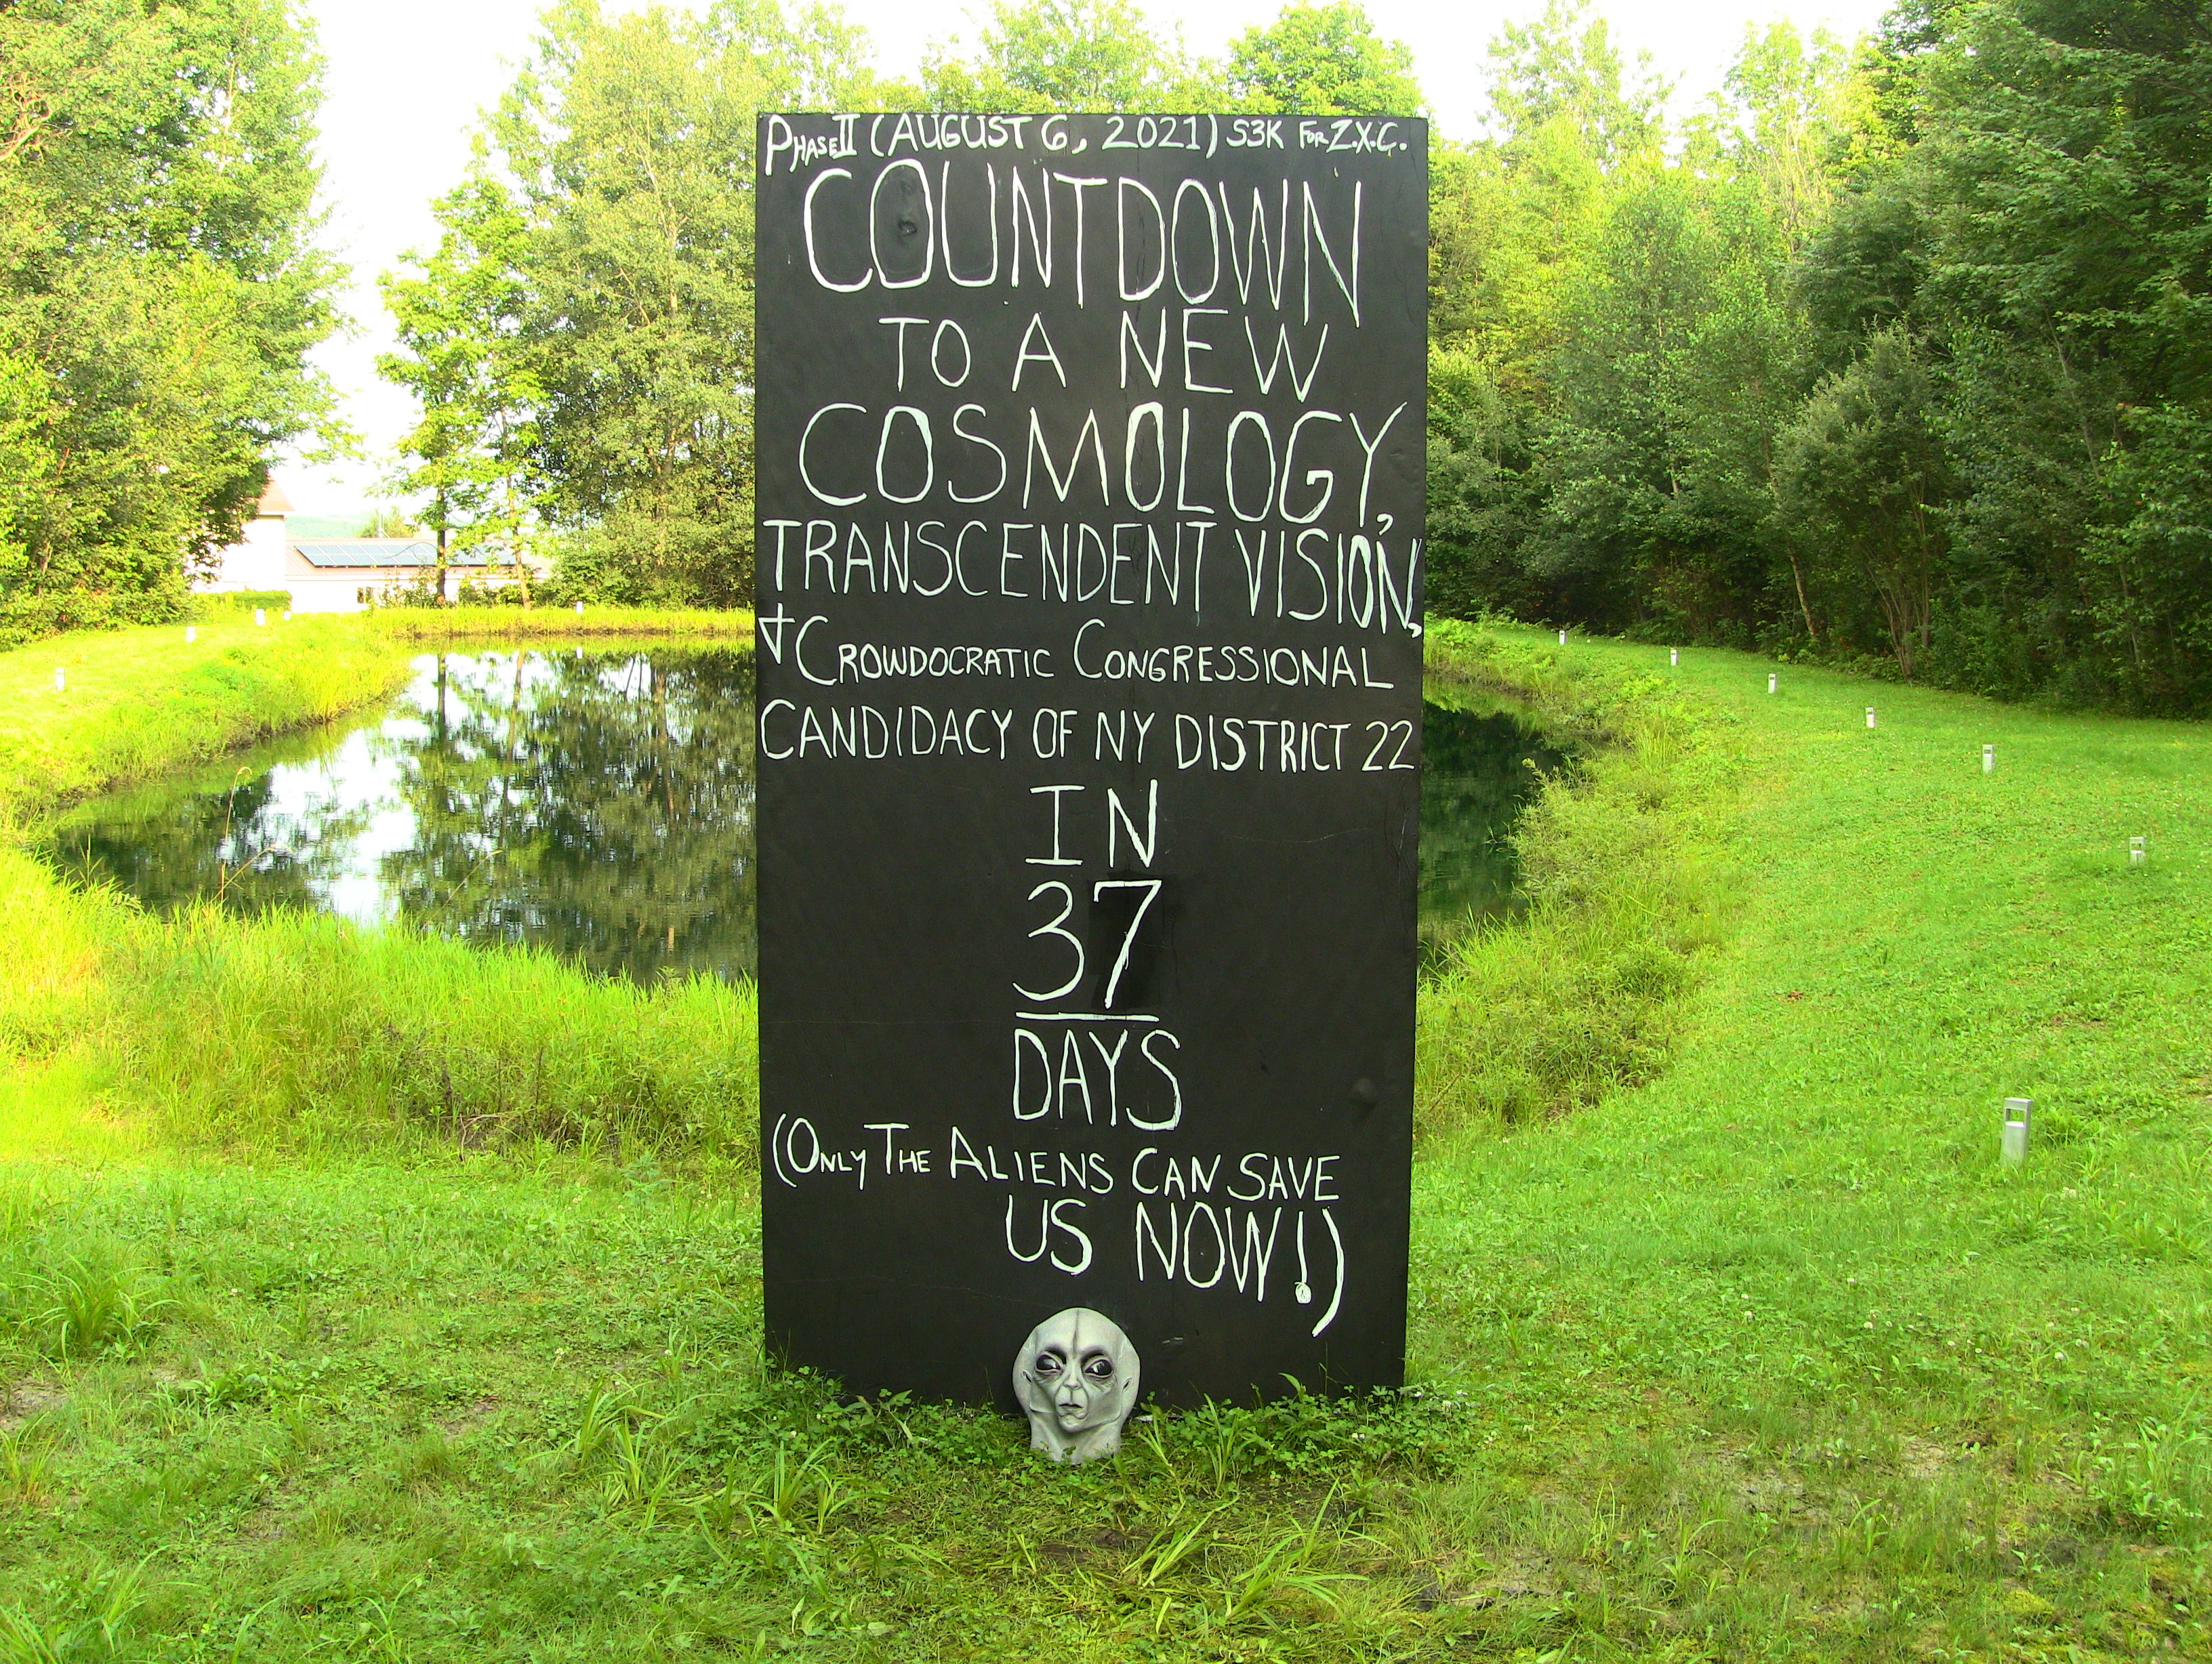 PHASE II (AUGUST 6, 2021) S3K FOR Z.X.C.
COUNTDOWN
TO A NEW
COSMOLOGY,
TRANSCENDENT VISION,
+ CROWDOCRATIC CONGRESSIONAL
CANDIDACY OF NY DISTRICT 22
IN
37
DAYS
(ONLY THE ALIENS CAN SAVE
US NOW!)